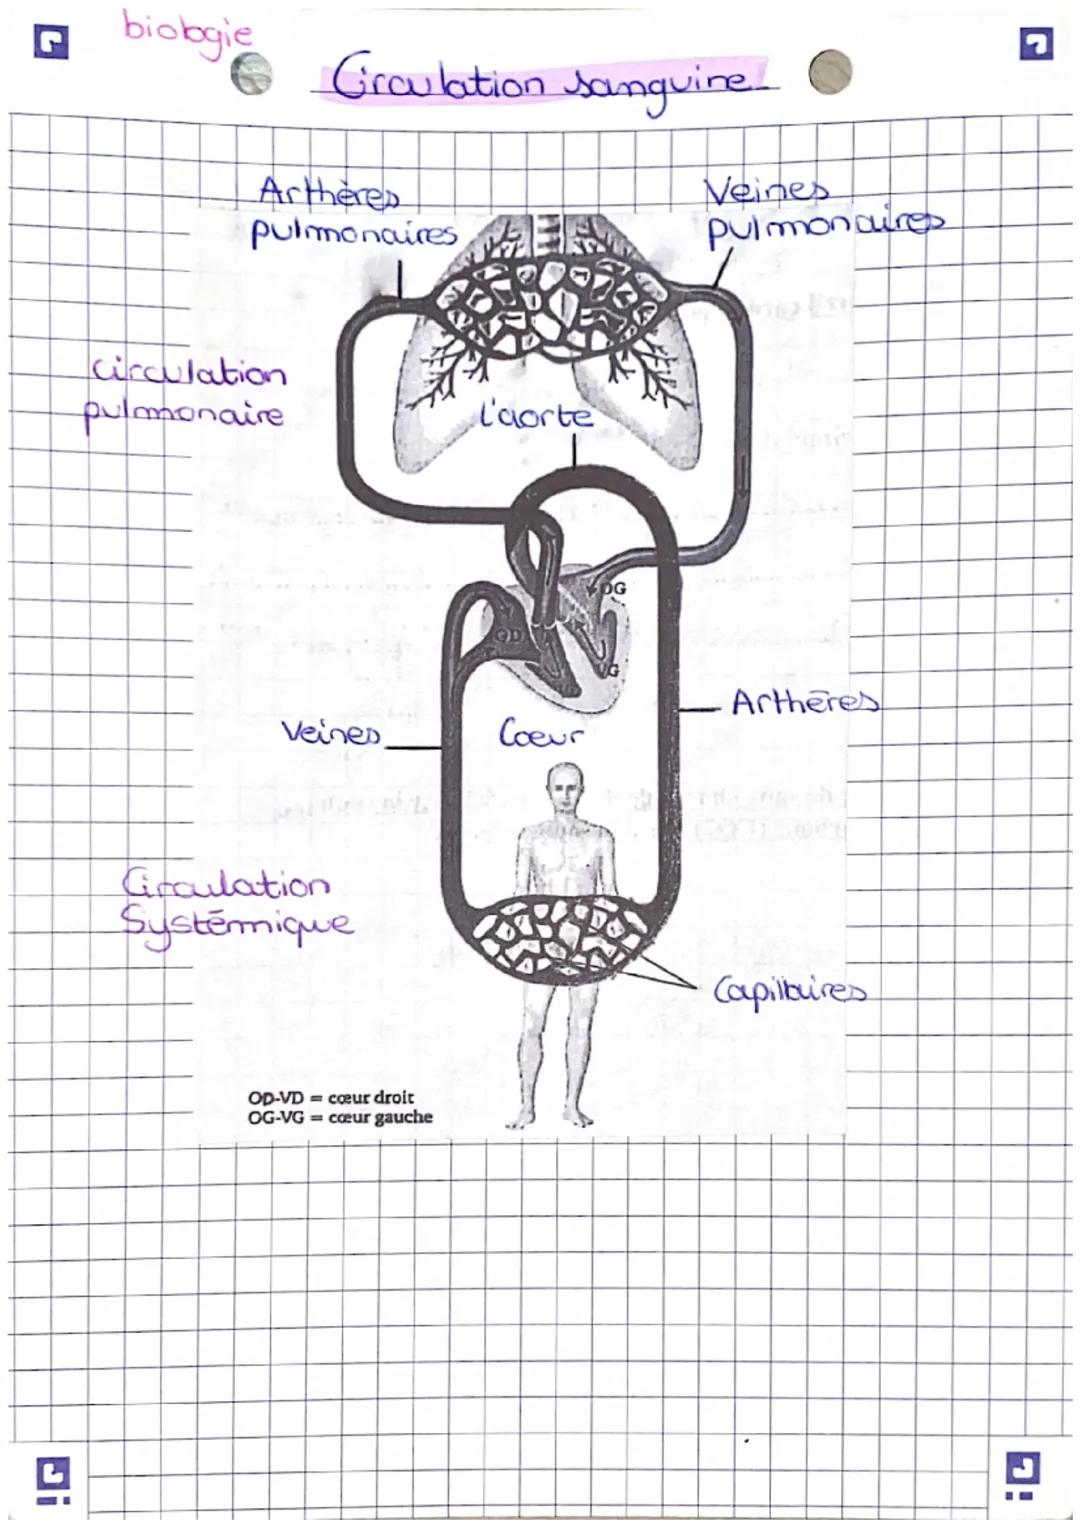 biologie
Circulation sanguine
Arthères
pulmonaires
Veines
pulmonaires
circulation
pulmonaire
l'aorte
OG
OD
G
Arthères
Veines
Coeur
Circulation
Systémique
Capillaires
OD-VD = cœur droit
OG-VG = cœur gauche